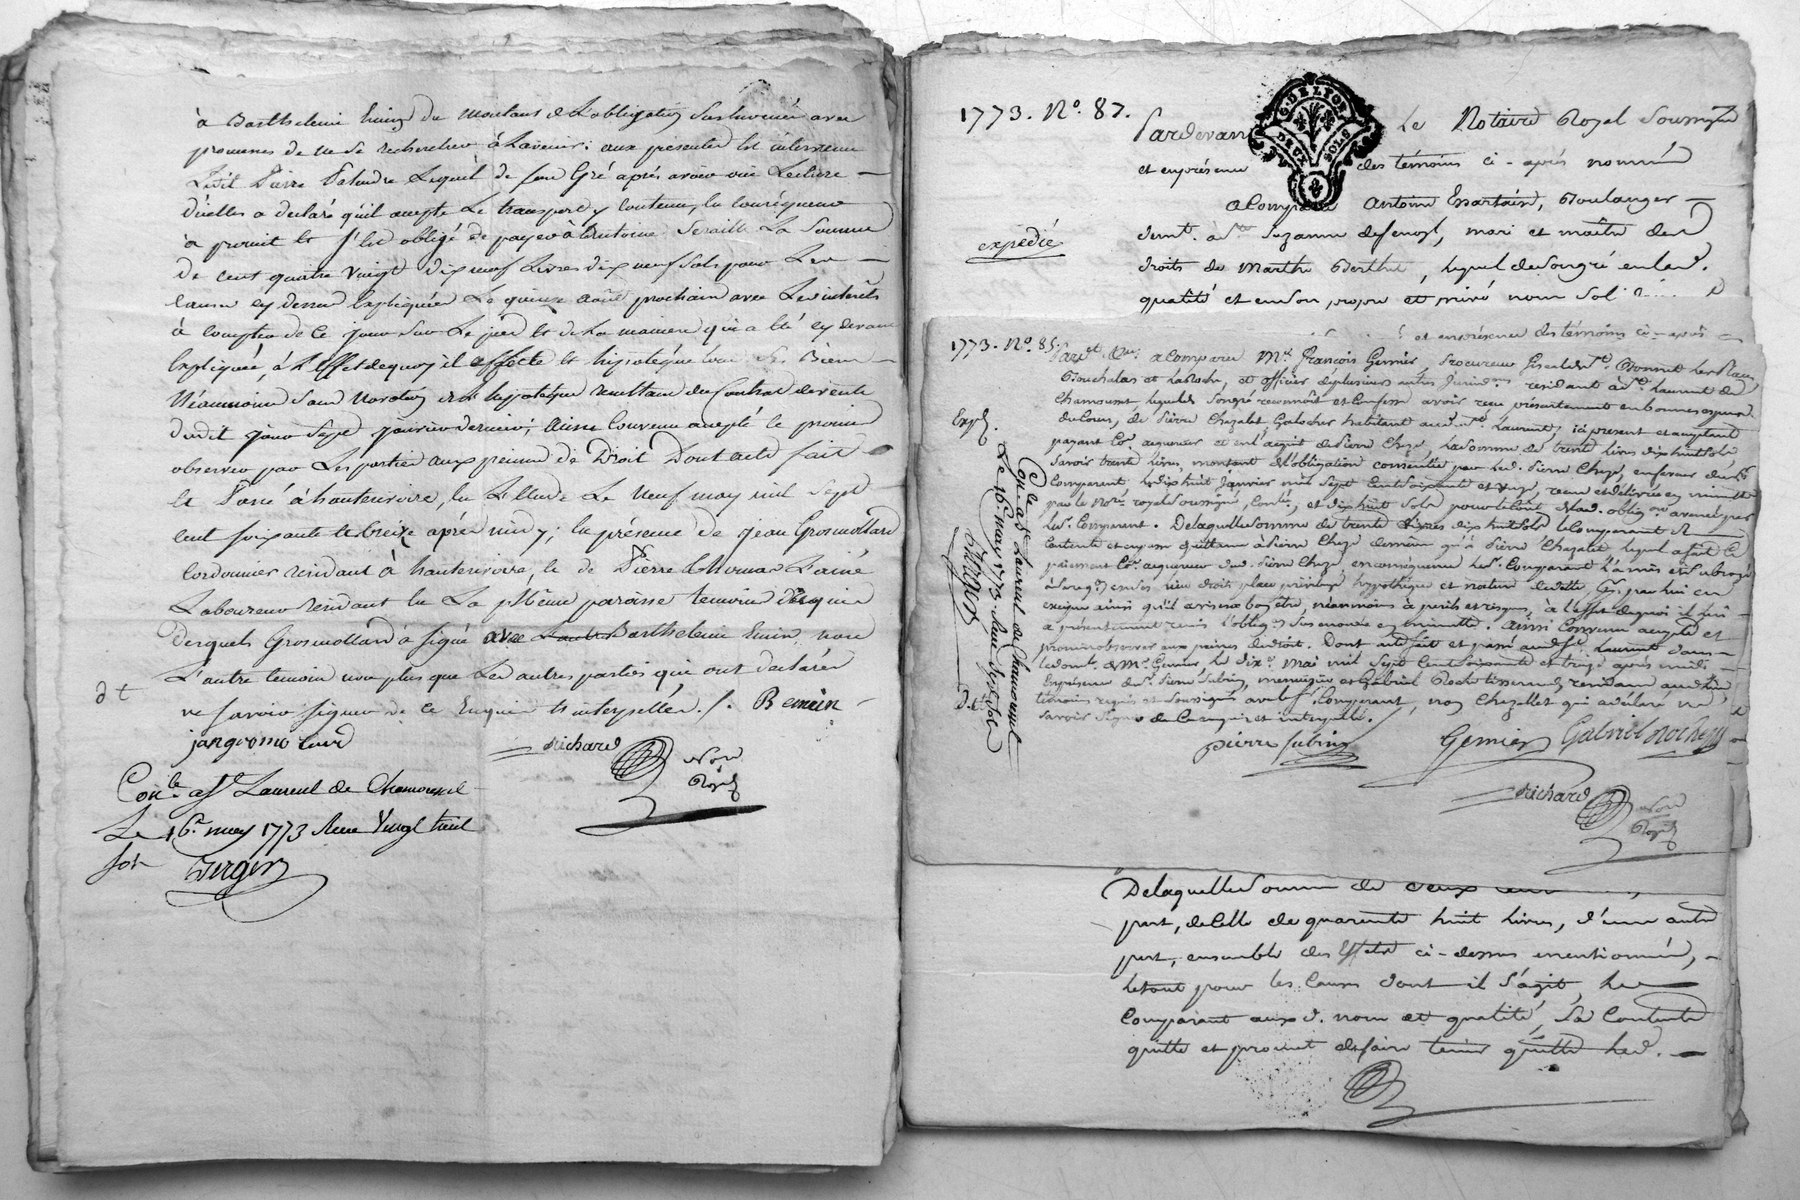 à Barthelemi du montant de L'obligation avec
promesses de ne se rechercher à L'avenir: aux presentes Est intervenu
Ledit Pierre Lequel de son Gré après avoir oui Lecture
d'icelles a declaré qu'il accepte Le transport y contenu, En Conséquence
à promit Et s'Est obligé de payer à Antoine La Somme
de cent quatre Vingt Dix neuf Livres dix neuf Sols pour Les
causes cy dessus Expliquées Le quinze août prochain avec Les interêts
à compter de Ce jour Sur Le pied Et de La maniere qui a Eté cy devant
Expliquée, à L'Effet de quoy il affecte Et hipotéque tous Ses Biens
Néanmoins Sans Novation de L'hypotéque resultant du Contrat de vente
dudit jour Sept janvier dernier; ainsi Convenu accepté Et promis
observer par Les parties aux peines de Droit Dont acte fait
Et Passé à hauterivoire, En L'Etude Le Neuf may mil Sept
Cent soixante Et treize après midy; En présence de jean Grosmollard
Cordonnier residant à hauterivoire, Et de Pierre Thomas L'ainé
Laboureur residant En La même paroisse temoins requis
Desquels Grosmollard à signé avec Barthelemi non
L'autre temoin non plus que Les autres parties qui ont declarés
ne savoir signer de Ce Enquis Et interpellés.
d t
Richard
Nore
Royal
Con.le a St Laurent de Chamousset
Le 16e may 1773 Reçu Vingt huit
sols
1773. No. 87.
Pardevant Le Notaire Royal Soussigné
et en présence des témoins ci-après nommés
G. DE LYON
DEUX SOLS
a Comparu Antoine Boulanger
demt. à Ste Suzanne mari et maître des
expedié
droits de Marthe Berthet, lequel de son gré en lad.
qualité et en son propre et privé nom
et en présence des témoins ci-après
1773. No. 85.
a Comparu Me. François Gernier, Procureur fiscal de
et Laroche, et officier de plusieurs autres residant à St. Laurent de
Chamousset lequel de Songré reconnoît et Confesse avoir recu présentement en bonnes especes
Exp.
du Cours, de Pierre Chazalet, Galocher habitant aud. St. Laurent, ici présent et acceptant
payant et en l'acquit de Pierre Chize, La Somme de trente livres dix huit Sols
Savoir trente livres, montant de l'obligation consentie par led. Pierre Chize, en faveur dud.
Comparant le dix huit Janvier mil Sept Cent Soixante et onze, recue et delivrée en minutte
par le Nore. royal Soussigné, Conlé., et dix huit Sols pour
led. Comparant. De laquelle Somme de trente livres dix huit Sols le Comparant
Contente et en passe quittance à Pierre Chize de même qu'à Pierre Chazalet lequel a fait Ce
payement dud. Pierre Chize, en conséquence led. Comparant l'a mis et subrogé
à ses droits place privilege hypotheque et nature de dette, pour lui en
exiger ainsi qu'il avisera bon être, néanmoins à perils et risques, à l'effet de quoi il lui
a présentement remis l'oblig.on susénoncée en minutte. ainsi Convenu accepté et
promis observer aux peines de droit. Dont acte fait et passé aud. St. Laurent dans
de Me. Gernier Le dix Mai mil Sept Cent soixante et treize après midi
En présence de Sr. Pierre Subrin, menuisier et Gabriel residants aud. lieu
témoins requis et Soussignés avec led. Sr. Comparant, non Chazallet qui a déclaré ne
D. t.
Savoir Signer de Ce enquis et interpellé.
Con.le à St. Laurent de Chamousset
Le 16e. may 1773. Reçu
pierre subrin
Gernier
Gabriel
Richard
Nore
Royal
De laquelle Somme de deux
part, de Celle de quarante huit livres, d'une autre
part, ensemble des Effets ci-dessus mentionnés,
le tout pour les Causes dont il s'agit, led.
Comparant aux d. nom et qualité, Se Contente
quitte et promet de faire tenir quitte led.